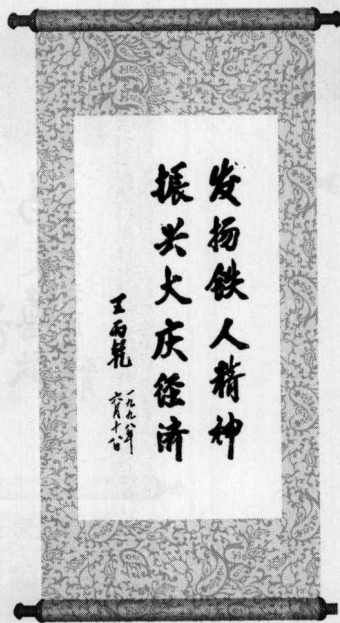 发扬铁人精神
振兴大庆经济
王丙乾
一九九八年
六月十八日